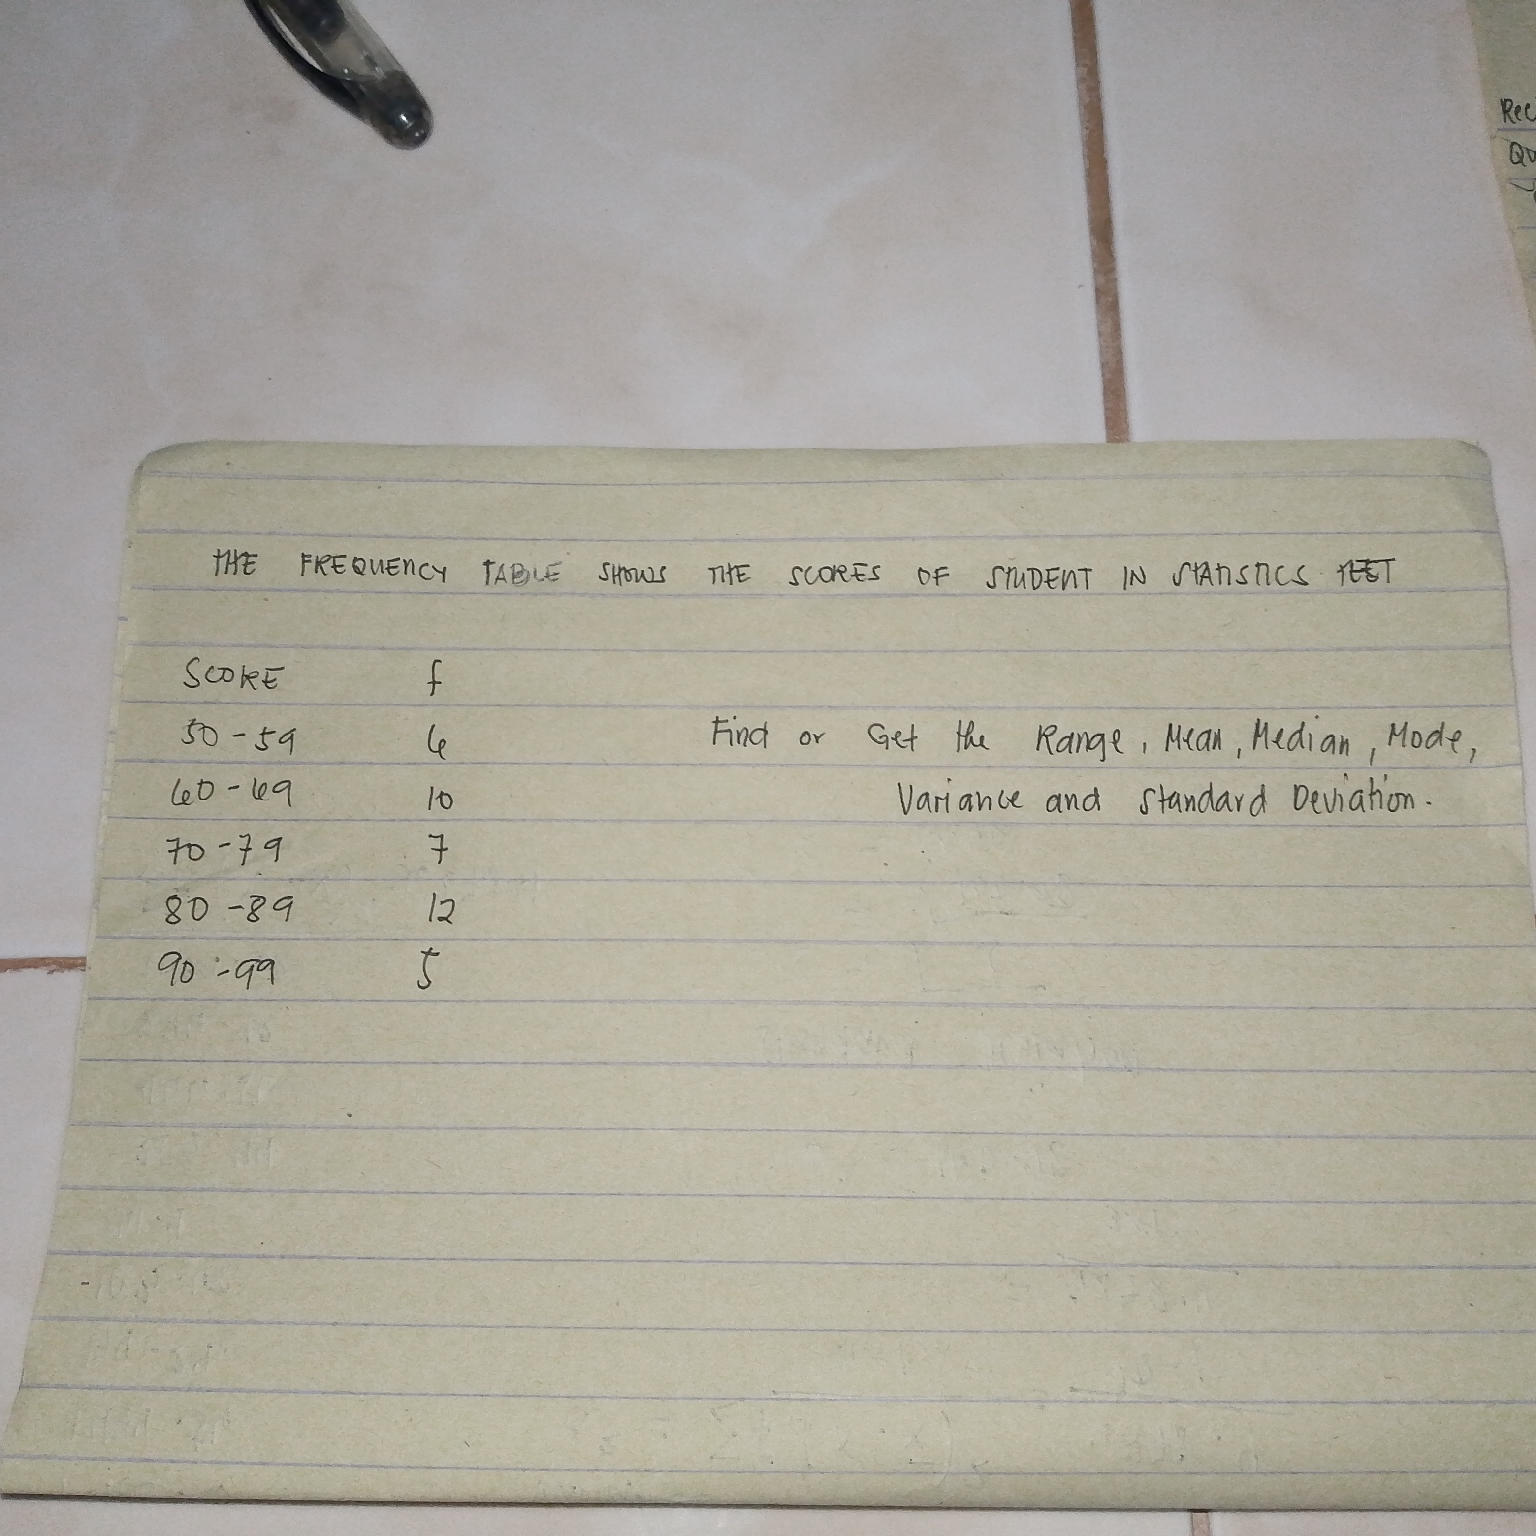 Rec
Qu
THE FREQUENCY TABLE SHOWS THE SCORES OF STUDENT IN STATISTICS TEST
SCORE f
50-59 6
60-69 10
70-79 7
80-89 12
90-99 5
Find or Get the Range, Mean, Median, Mode,
Variance and Standard Deviation.